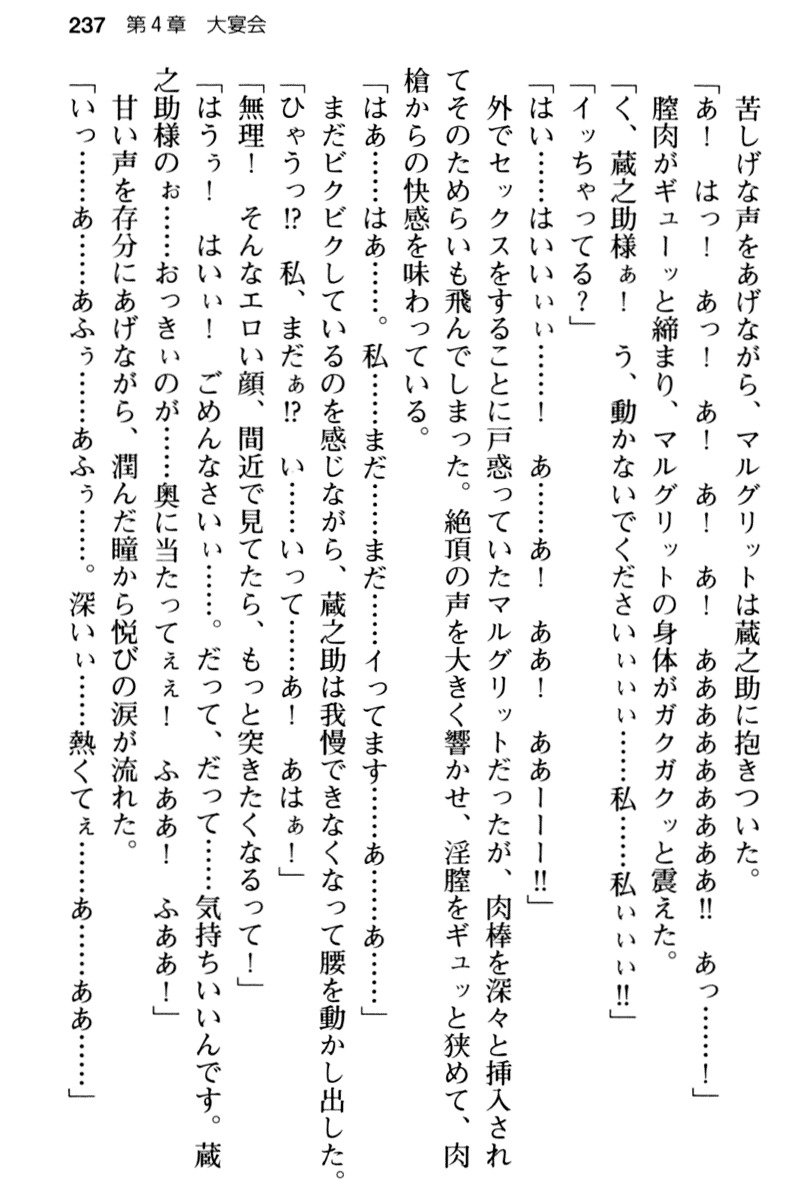 237 第4章 大宴会
苦しげな声をあげながら、マルグリットは蔵之助に抱きついた。
「あ！ はっ！ あっ！ あ！ あ！ あ！ ああああああああ‼ あっ……！」
膣肉がギューッと締まり、マルグリットの身体がガクガクッと震えた。
「く、蔵之助様ぁ！ う、動かないでくださいぃぃぃ……私……私ぃぃぃ‼」
「イッちゃってる？」
「はい……はいいぃぃ……！ あ……あ！ ああ！ ああーーー‼」
外でセックスをすることに戸惑っていたマルグリットだったが、肉棒を深々と挿入され
てそのためらいも飛んでしまった。絶頂の声を大きく響かせ、淫膣をギュッと狭めて、肉
槍からの快感を味わっている。
「はあ……はあ……。私……まだ……まだ……イってます……あ……あ……」
まだビクビクしているのを感じながら、蔵之助は我慢できなくなって腰を動かし出した。
「ひゃうっ⁉ 私、まだぁ⁉ い……いって……あ！ あはぁ！」
「無理！ そんなエロい顔、間近で見てたら、もっと突きたくなるって！」
「はうぅ！ はいぃ！ ごめんなさいぃ……。だって、だって……気持ちいいんです。蔵
之助様のぉ……おっきぃのが……奥に当たってぇぇ！ ふああ！ ふああ！」
甘い声を存分にあげながら、潤んだ瞳から悦びの涙が流れた。
「いっ……あ……あふぅ……あふぅ……。深いぃ……熱くてぇ……あ……ああ……」